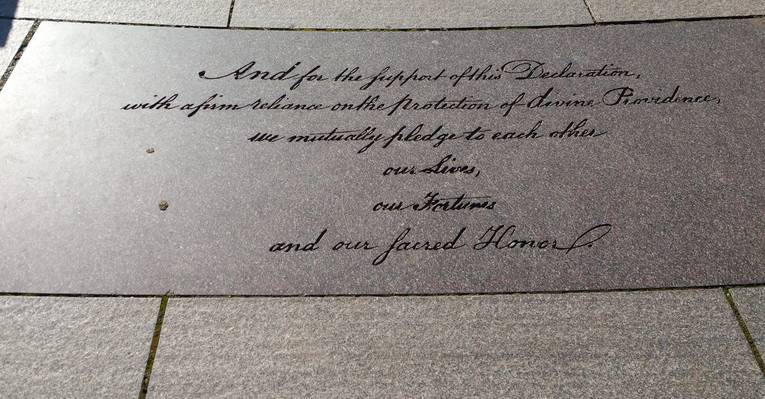 And for the support of this Declaration,
with a firm reliance on the Protection of divine Providence,
we mutually pledge to each other
our Lives,
our Fortunes
and our sacred Honor.